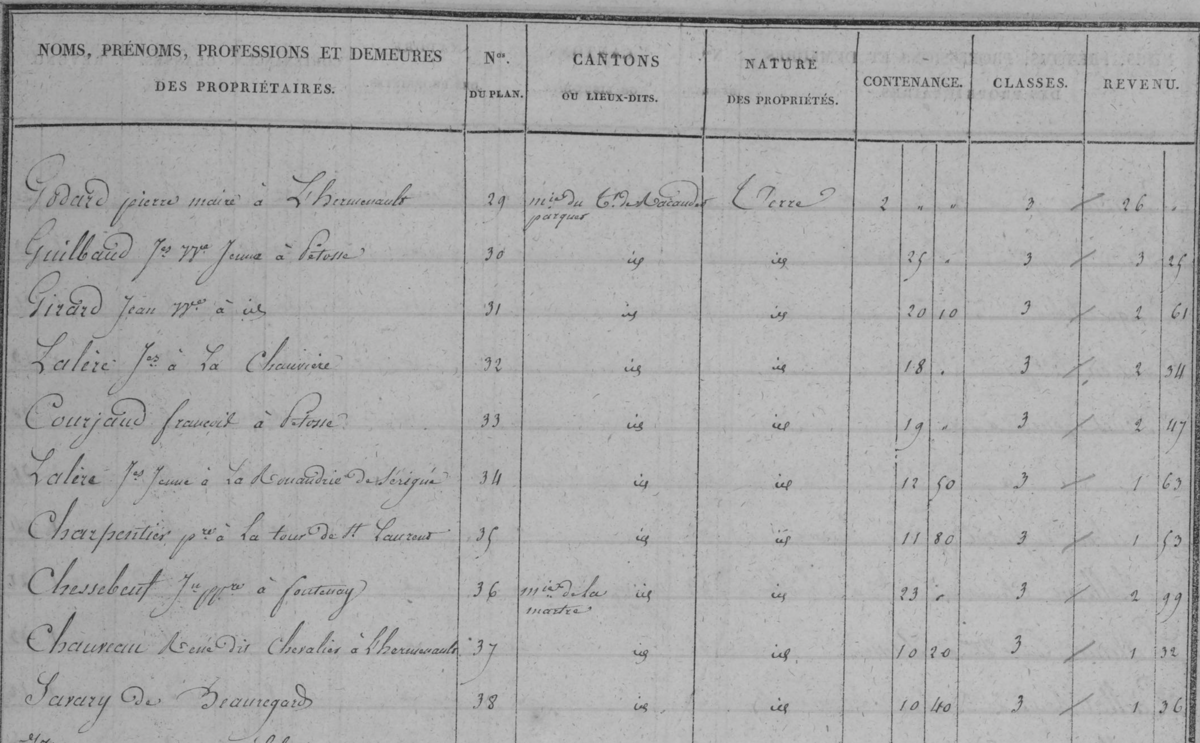 NOMS, PRÉNOMS, PROFESSIONS ET DEMEURES DES PROPRIÉTAIRES. Nos. DU PLAN. CANTONS OU LIEUX-DITS. NATURE DES PROPRIÉTÉS. CONTENANCE. CLASSES. REVENU.
Godard pierre maire à L'hermenault 29 mie du Tt. de parques Terre 2 " " 3 26 "
Guilbaud Jes Jeune à Pétosse 30 id id 25 " 3 3 25
Girard Jean à id 31 id id 20 10 3 2 61
Lalère Jes à La Chauvière 32 id id 18 " 3 2 34
Courjaud françois à Pétosse 33 id id 19 " 3 2 47
Lalère Jes Jeune à La de Sérigné 34 id id 12 50 3 1 63
Charpentier pre à La tour de St Laurent 35 id id 11 80 3 1 53
Chessebeuf à fontenay 36 mie de la martre id id 23 " 3 2 99
Chauveau René dit Chevalier à L'hermenault 37 id id 10 20 3 1 32
Savary de Beauregard 38 id id 10 40 3 1 36